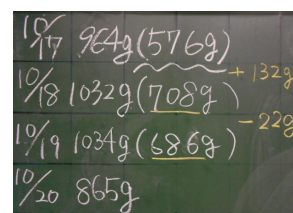 10/17 964g(576g)
+132g
10/18 1032g(708g)
-22g
10/19 1034g(686g)
10/20 865g